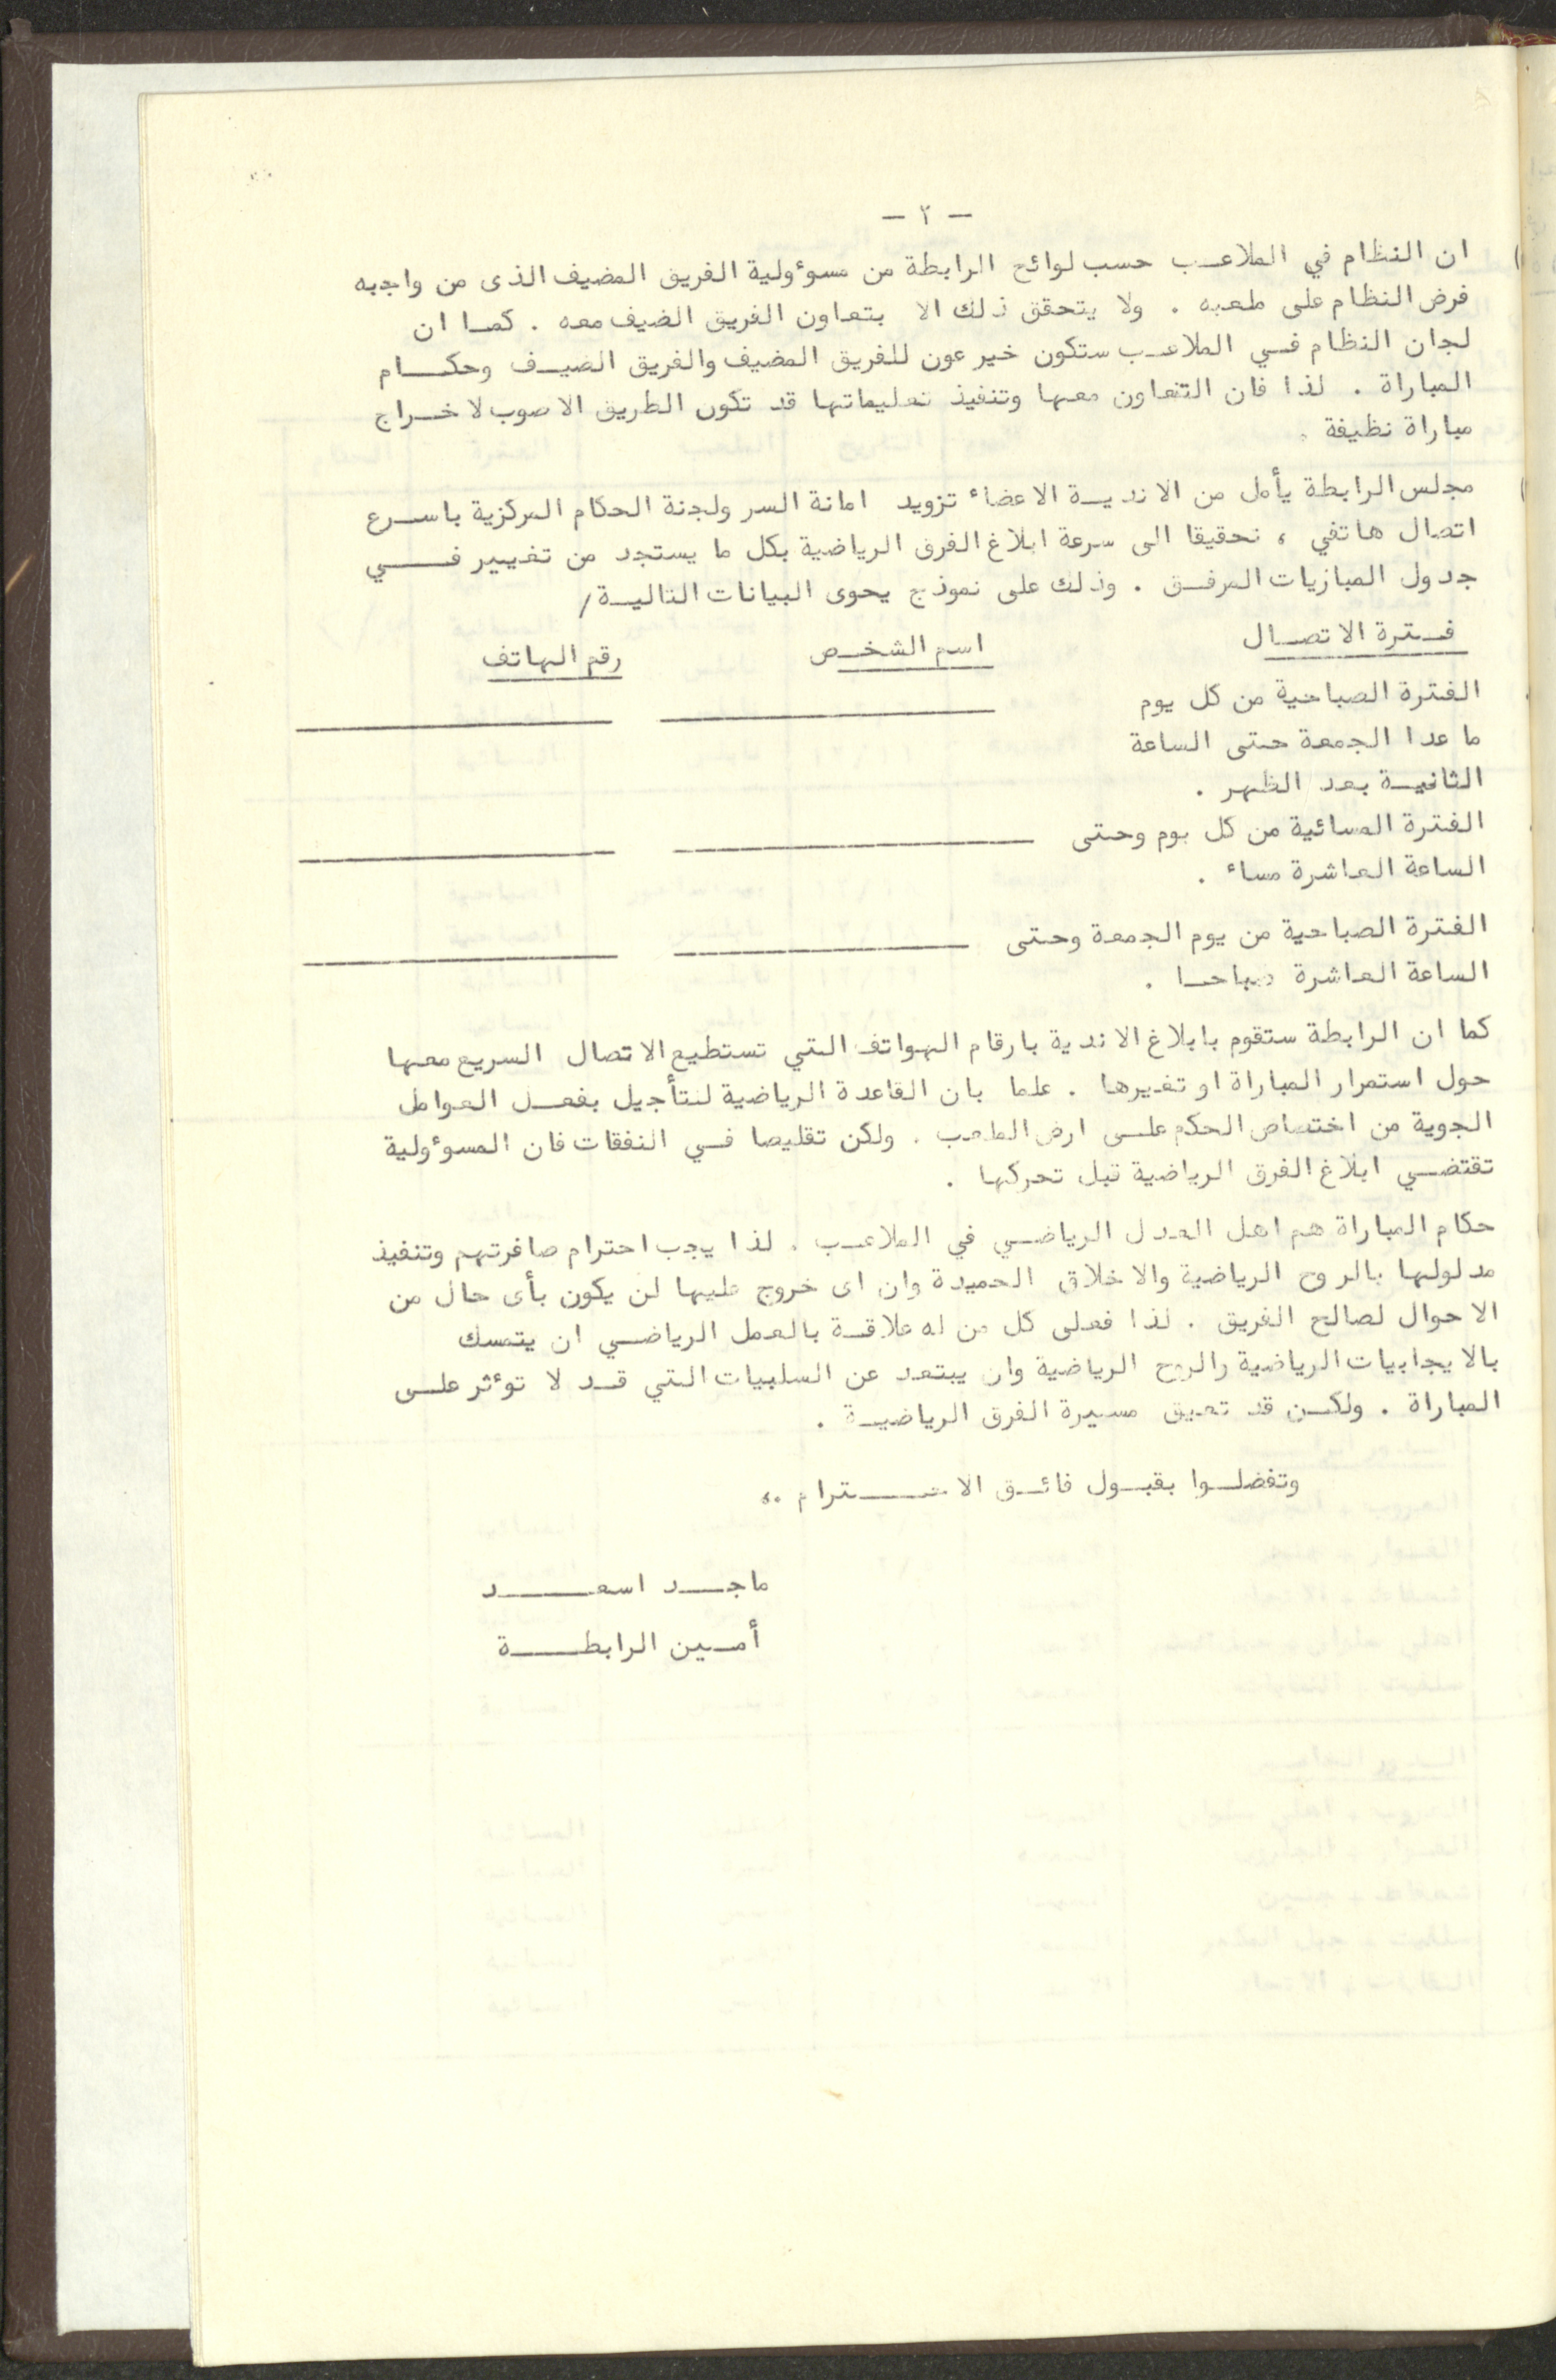 - ٢ -
ان النظام في الملاعب حسب لوائح الرابطة من مسوؤولية الفريق المضيف الذى من واجبه
فرض النظام على ملعبه . ولا يتحقق ذلك الا بتعاون الفريق الضيف معه . كما ان
لجان النظام في الملاعب ستكون خير عون للفريق المضيف والفريق الضيف وحكام
المباراة . لذا فان التعاون معها وتنفيذ تعليماتها قد تكون الطريق الاصوب لاخراج
مباراة نظيفة .
مجلس الرابطة يأمل من الاندية الاعضاء تزويد امانة السر ولجنة الحكام المركزية باسرع
اتصال هاتفي ، تحقيقا الى سرعة ابلاغ الفرق الرياضية بكل ما يستجد من تغيير في
جدول المباريات المرفق . وذلك على نموذج يحوى البيانات التالية /
فترة الاتصال اسم الشخص رقم الهاتف
الفترة الصباحية من كل يوم
ما عدا الجمعة حتى الساعة
الثانية بعد الظهر .
الفترة المسائية من كل يوم وحتى
الساعة العاشرة مساء .
الفترة الصباحية من يوم الجمعة وحتى
الساعة العاشرة صباحا .
كما ان الرابطة ستقوم بابلاغ الاندية بارقام الهواتف التي تستطيع الاتصال السريع معها
حول استمرار المباراة او تغيرها . علما بان القاعدة الرياضية لتأجيل بفعل العوامل
الجوية من اختصاص الحكم على ارض الملعب . ولكن تقليصا في النفقات فان المسوؤولية
تقتضي ابلاغ الفرق الرياضية قبل تحركها .
حكام المباراة هم اهل العدل الرياضي في الملاعب . لذا يجب احترام صافرتهم وتنفيذ
مدلولها بالروح الرياضية والاخلاق الحميدة وان اى خروج عليها لن يكون بأى حال من
الاحوال لصالح الفريق . لذا فعلى كل من له علاقة بالعمل الرياضي ان يتمسك
بالايجابيات الرياضية والروح الرياضية وان يبتعد عن السلبيات التي قد لا توؤثر على
المباراة . ولكن قد تعيق مسيرة الفرق الرياضية .
وتفضلوا بقبول فائق الاحترام ،،
ماجد اسعد
أمين الرابطة